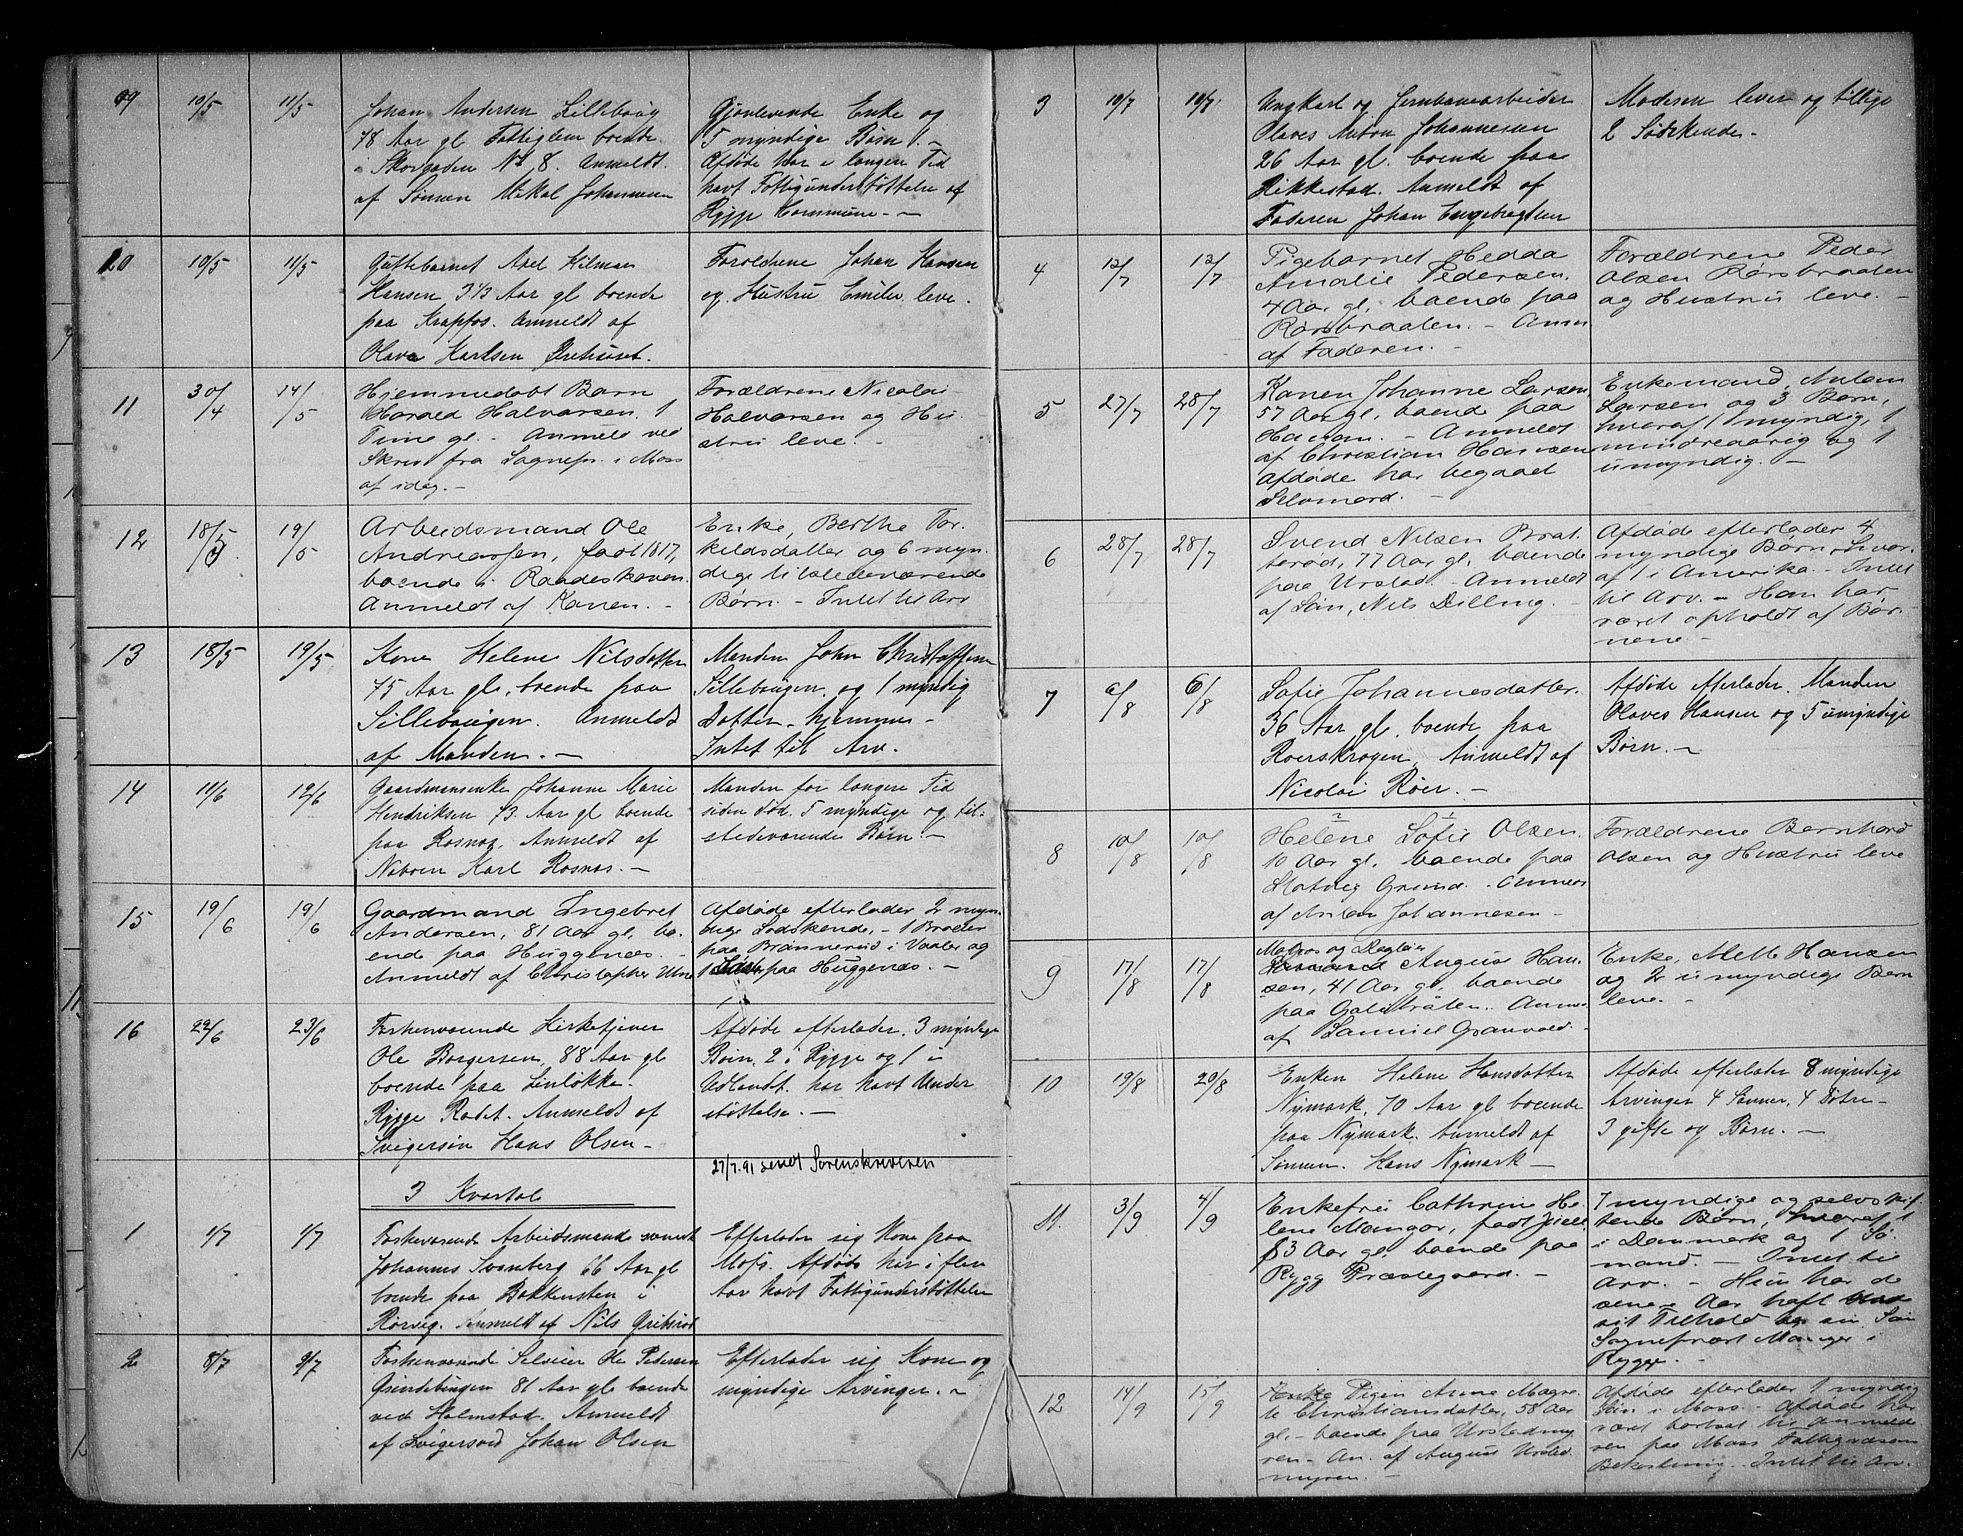 99 10/5 11/5
Johan Andersen Lillebaug
78 Aar gl Fattiglem boende
i Skovgaden No 8. Anmeldt
af Sønnen Mikal Johannesen
Gjenlevende Enke og
5 myndige Børn.-
Afdøde har i længere Tid
havt Fattigunderstøttelse af
Rygge Kommune. -
10 10/5 11/5
Guttebarnet Axel Hilmar
Hansen 3 1/3 Aar gl boende
paa Krapfos. Anmeldt af
Olava Karlsen
Forældrene Johan Hansen
og Hustru Emilie leve.
11 30/4 14/5
Hjemmedøbt Barn
Harald Halvorsen 1
Time gl. - Anmeldt ved
Skrift fra Sognepr. i Moss
af idag. -
Forældrene Nicolai
Halvorsen og Hu-
stru leve. -
12 18/5 19/5
Arbeidsmand Ole
Andreassen, født 1817,
boende i Raadeskoven
Anmeldt af Konen. -
Enke, Berthe Tor-
kildsdatter og 6 myn-
dige tilstedeværende
Børn - Intet til Arv
13 18/5 19/5
Kone Helene Nilsdatter
75 Aar gl. boende paa
Lillebaugen. Anmeldt
af Manden. -
Manden John Christoffersen
Lillebaugen og 1 myndig
Datter - hjemme -
Intet til Arv.
14 11/6 12/6
Gaardmandsenke Johanne Marie
Hendriksen 73 Aar gl boende
paa Rosnæs. Anmeldt af
Naboen Karl Rosnæs. -
Manden for længere Tid
siden død. 5 myndige og til-
stedeværende Børn. -
15 19/6 19/6
Gaardmand Ingebret
Andersen, 81 Aar gl, bo-
ende paa Huggenæs. -
Anmeldt af Christopher
Afdøde efterlader 2 myn-
dige Sødskende, - 1 Broder
paa Brønnerud i Vaaler og
1 paa Huggenæs. -
16 22/6 23/6
Forhenværende Kirketjener
Ole Borgersen 88 Aar gl
boende paa Linløkke.
Rygge Radet. Anmeldt af
Svigersøn Hans Olsen -
Afdøde efterlader 3 myndige
Børn, 2 i Rygge og 1 i
Udlandet. har havt Under
støttelse. -
27/7.91 sendt Sorenskriveren
3 Kvartal
1 1/7 1/7
Forhenværende Arbeidsmand
Johannes Svanberg 66 Aar gl
boende paa Bakkensten i
Rørvig. Anmeldt af Nils
Efterlader sig Kone paa
Mofs. Afdøde har i flere
Aar havt Fattigunderstøttelse
2 8/7 9/7
Forhenværende Selveier Ole Pedersen
Grindebingen 81 Aar gl boende
ved Holmstad. Anmeldt
af Svigersøn Johan Olsen
Efterlader sig Kone og
myndige Arvinger. -
3 10/7 10/7
Ungkarl og Jernbanearbeider
Olaves Anton Johannesen
26 Aar gl. boende paa
Rikkestad. Anmeldt af
Faderen Johan Engebregtsen
Moderen lever og tillige
2 Sødskende -
4 12/7 12/7
Pigebarnet Hedda
Amalie Pedersen.
4 Aar gl. boende paa
Rørsbraaten. - Anm
af Faderen. -
Forældrene Peder
Olsen Rørsbraaten
og Hustru leve. -
5 27/7 28/7
Konen Johanne Larsen
57 Aar gl, boende paa
Havnen. - Anmeldt
af Christian Hansen
Afdøde har begaaet
Selvmord. -
Enkemand, Anton
Larsen og 3 Børn,
hvoraf 1 myndig, 1
mindreaarig og 1
umyndig. -
6 28/7 28/7
Svend Nilsen Brat-
terød, 77 Aar gl. boende
paa Urstad. - Anmeldt
af Søn, Nils Dilling. -
Afdøde efterlader 4
myndige Børn, hvor-
af 1 i Amerika. - Intet
til Arv. - Han har
været opholdt af Bør-
nene. -
7 6/8 6/8
Sofie Johannesdatter.
36 Aar gl, boende paa
Roerskrogen. Anmeldt af
Nicolai Röer. -
Afdøde efterlader Manden
Olaves Hansen og 5 umyndige
Børn. -
8 10/8 10/8
Helene Sofie Olsen.
10 Aar gl, boende paa
Grund. - Anmeldt
af Anton Johannesen -
Forældrene Bernhard
Olsen og Hustru leve
9 17/8 17/8
Matros og
August Han-
sen, 41 Aar gl, boende
paa Galeibråten. Anm.
af Samuel Grønvold. -
Enke, Mette Hansen
og 2 umyndige Børn
leve. -
10 19/8 20/8
Enken Helene Hansdatter
Nymark, 70 Aar gl boende
paa Nymark. Anmeldt af
Sønnen Hans Nymark -
Afdøde efterlader 8 myndige
Arvinger 4 Sønner, 4 Døtre -
3 gifte og Børn. -
11. 3/9 4/9
Enkefru Cathrine He-
lene Mangor, født Juell
83 Aar gl, boende paa
Rygg Præstegaard. -
7 myndige og selvskif-
tende Børn, hvoraf 1
i Danmark og 1 Sø-
mand. - Intet til
Arv. - Hun har de
senere Aar haft
sit Tilhold hos sin Søn
Sognepræst Mangor i
Rygge. -
12 14/9 15/9
Pigen Anne Magre-
te Christiansdatter, 58 Aar
gl, - boende paa Urstadmy-
ren - An. af August Urstad-
myren -
Afdøde efterlader 1 myndig
Søn i Moss. - Afdøde har
været bortsat til Anmelde-
ren paa Moss Fattigvæsens
Bekostning. - Intet til Arv.